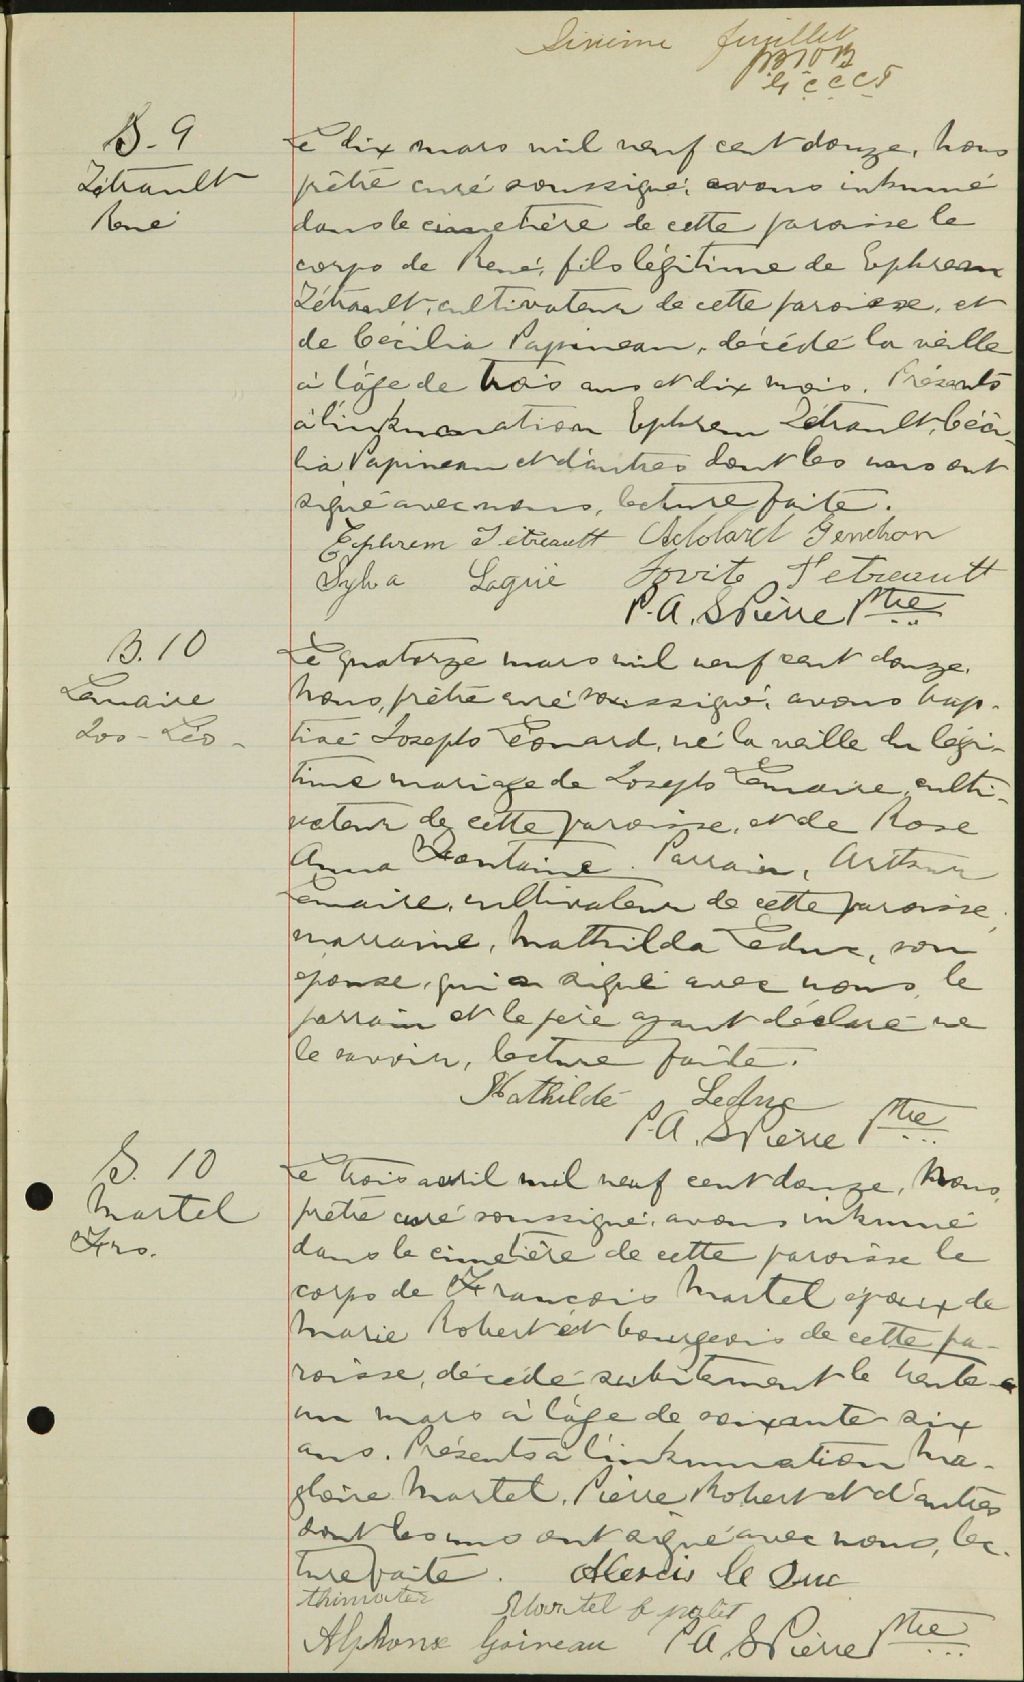 Sixième feuillet
B. 9
Tétrault
René
Le dix mars mil neuf cent douze, nous
prêtre curé soussigné, avons inhumé
dans le cimetière de cette paroisse le
corps de René, fils légitime de Ephrem
Tétrault, cultivateur de cette paroisse, et
de Cécilia Papineau, décédé la veille
à l'âge de trois ans et dix mois. Présents
à l'inhumation Ephrem Tétrault, Céci-
lia Papineau et d'autres dont les uns ont
signé avec nous, lecture faite.
Ephrem Tétreault Adélard Gendron
Sylva Laguë Jovite Tetreault
P. A. St Pierre Ptre
B. 10
Lemaire
Jos-Léo-
Le quatorze mars mil neuf cent douze,
nous, prêtre curé soussigné, avons bap-
tisé Joseph Léonard, né la veille du légi-
time mariage de Joseph Lemaire, culti-
vateur de cette paroisse, et de Rose
Anna Fontaine. Parrain, Arthur
Lemaire, cultivateur de cette paroisse,
marraine, Mathilda Leduc, son
épouse, qui a signé avec nous, le
parrain et le père ayant déclaré ne
le savoir, lecture faite.
Mathilde Leduc
P. A. St Pierre Ptre
S. 10
Martel
Frs.
Le trois avril mil neuf cent douze, nous,
prêtre curé soussigné, avons inhumé
dans le cimetière de cette paroisse le
corps de François Martel époux de
Marie Robert et bourgeois de cette pa-
roisse, décédé subitement le trente-
un mars à l'âge de soixante-six
ans. Présents à l'inhumation Ma-
gloire Martel, Pierre Robert et d'autres
dont les uns ont signé avec nous, lec-
ture faite. Alexcis le Duc
Martel
Alphonse Goineau P. A. St Pierre Ptre